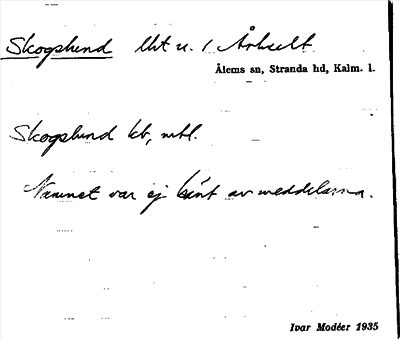 Skogslund lht u. /
Ålems sn, Stranda hd, Kalm. l.
Skogslund kb, mtl.
Namnet var ej känt av meddelarna.
Ivar Modéer 1935